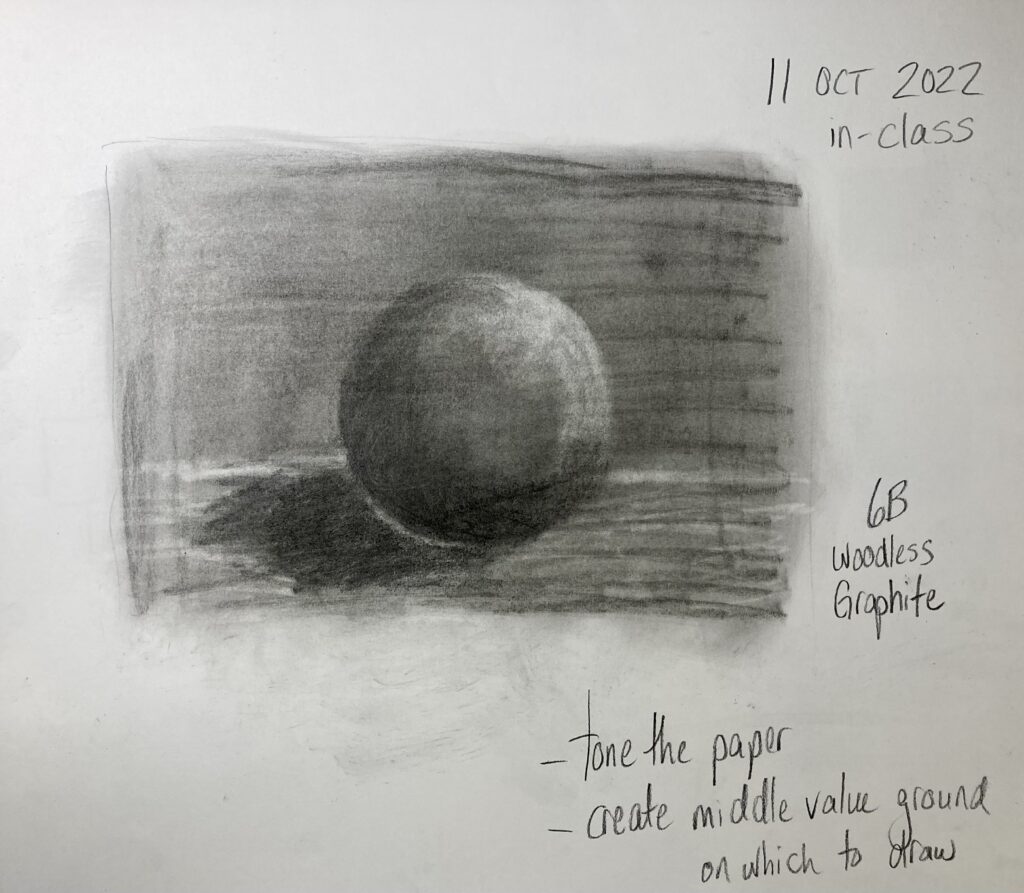 11 OCT 2022
in-class
6B
Woodless
Graphite
- tone the paper
- create middle value ground
on which to draw